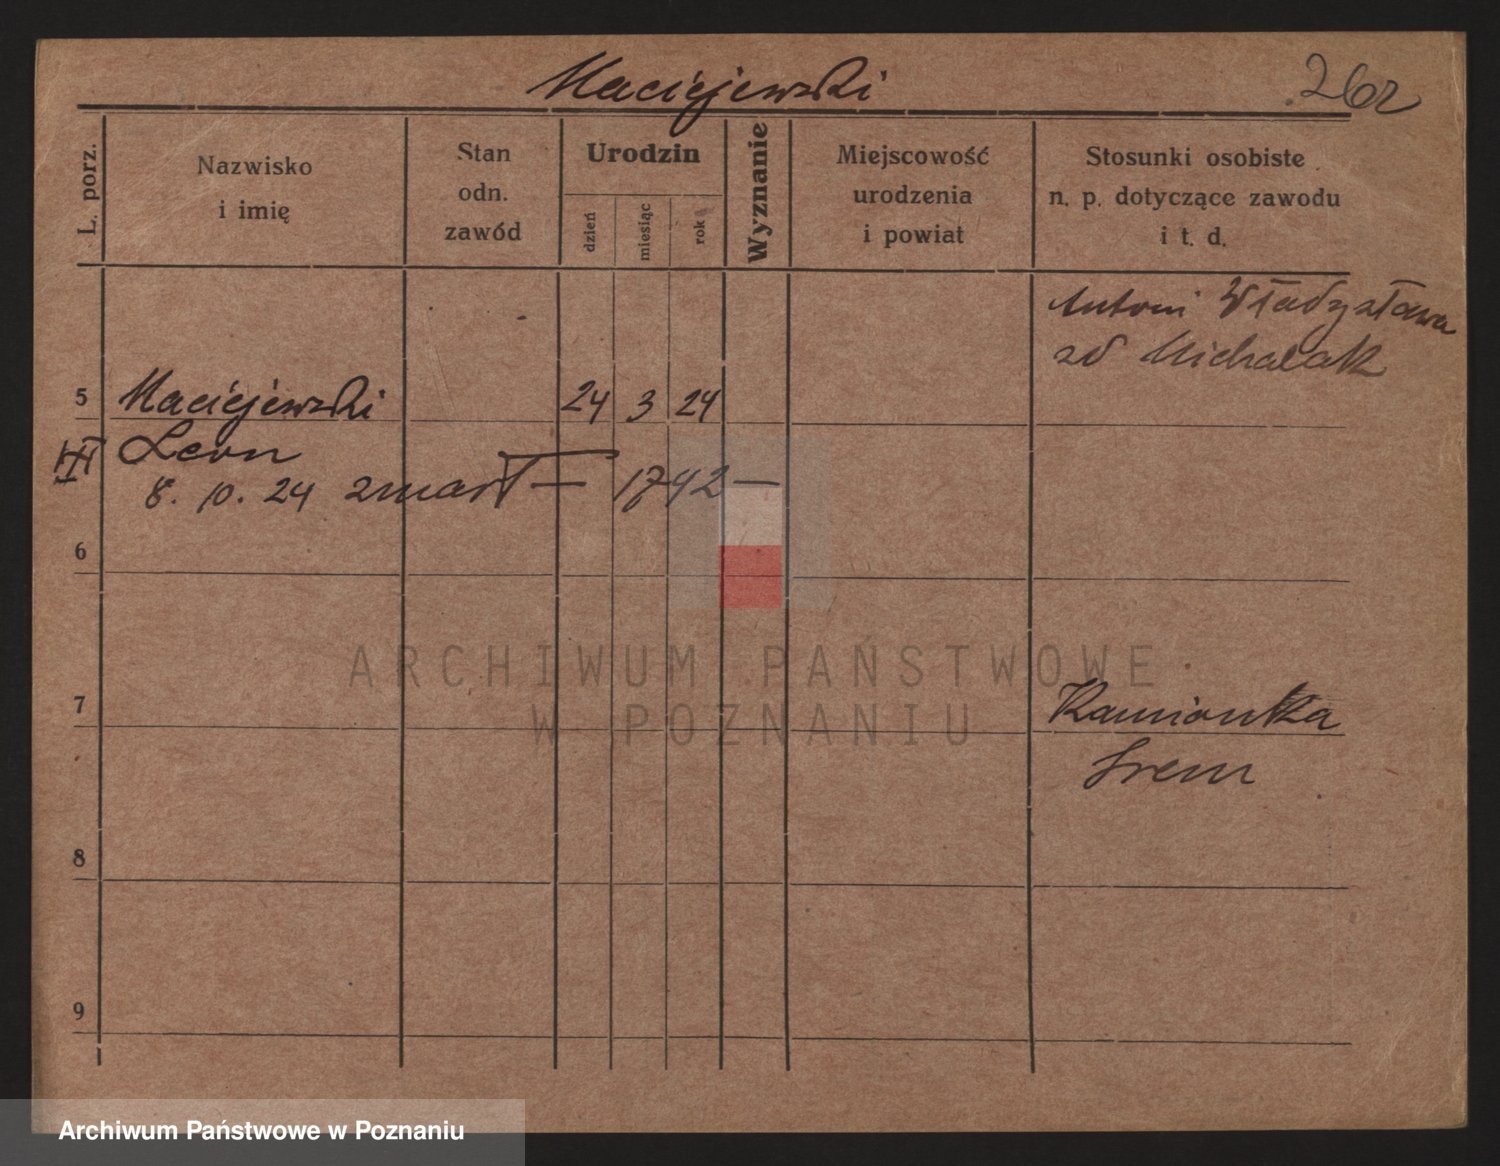 Maciejewski
262
L. porz.
Nazwisko
i imię
Stan
odn.
zawód
Urodzin
dzień
miesiąc
rok
Wyznanie
Miejscowość
urodzenia
i powiat
Stosunki osobiste
n. p. dotyczące zawodu
i t. d.
Antoni Władysława
zd Michalak
5 Maciejewski 24 3 24
Leon
8. 10. 24 zmarł — 1742 —
6
7
Kamionka
Srem
8
9
ARCHIWUM PAŃSTWOWE
W POZNANIU
Archiwum Państwowe w Poznaniu